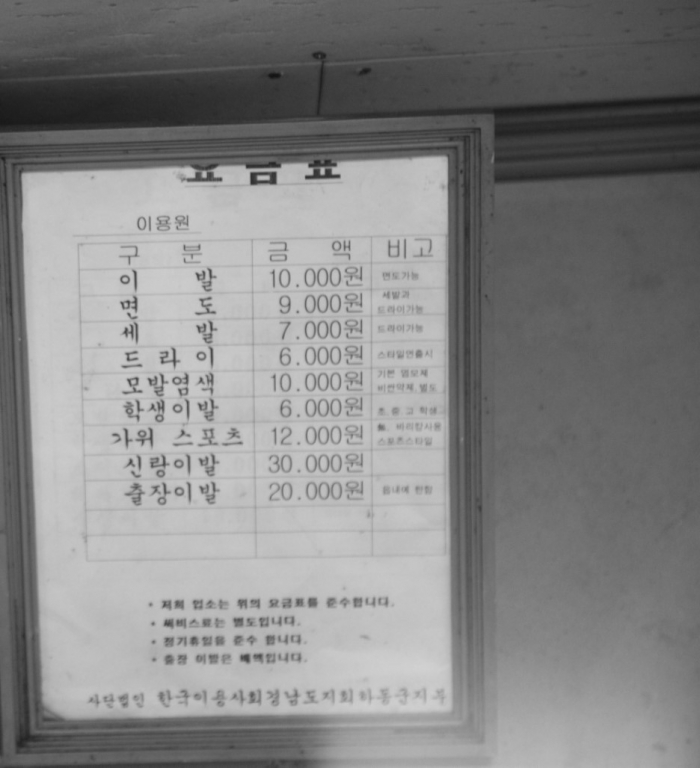 요금표
이용원
구 분 금 액 비고
이 발 10.000원 면도가능
면 도 9.000원 세발과 드라이가능
세 발 7.000원 드라이가능
드 라 이 6.000원 스타일연출시
모발염색 10.000원 기본 염모제 별도
학생이발 6.000원 초.중.고 학생
가위 스포츠 12.000원 바리캉사용 스포츠스타일
신랑이발 30.000원
출장이발 20.000원 읍내에 한함
• 저희 업소는 위의 요금표를 준수합니다.
• 써비스료는 별도입니다.
• 정기휴일을 준수 합니다.
• 출장 이발은 배액입니다.
사단법인 한국이용사회경남도지회하동군지부